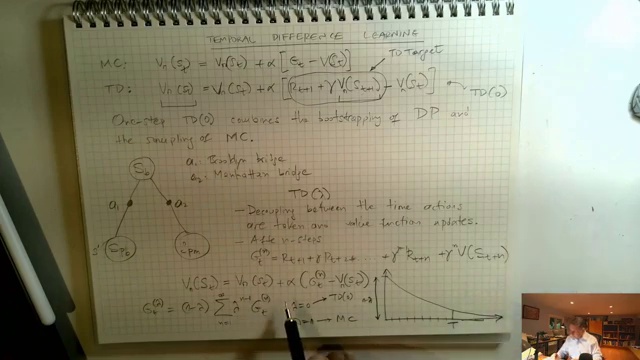 TEMPORAL DIFFERENCE LEARNING
MC: Vπ(St) = Vπ(St) + α [Gt - V(St)]
TD Target
TD: Vπ(St) = Vπ(St) + α [Rt+1 + γ Vπ(St+1) - Vπ(St)]
TD(0)
One-step TD(0) combines the bootstrapping of DP and
the sampling of MC.
a1: Brooklyn bridge
a2: Manhattan bridge
Sb
a1
a2
s'
Spb
Spm
TD(λ)
- Decoupling between the time actions
are taken and value function updates.
- After n-steps
Gt(n) = Rt+1 + γ Rt+2 + γ^n-1 Rt+n + γ^n V(St+n)
Vπ(St) = Vπ(St) + α (Gt(n) - Vπ(St))
Gt(λ) = (1-λ) Σ n=1 ∞ λ^n-1 Gt(n)
λ=0 → TD(0)
MC
T